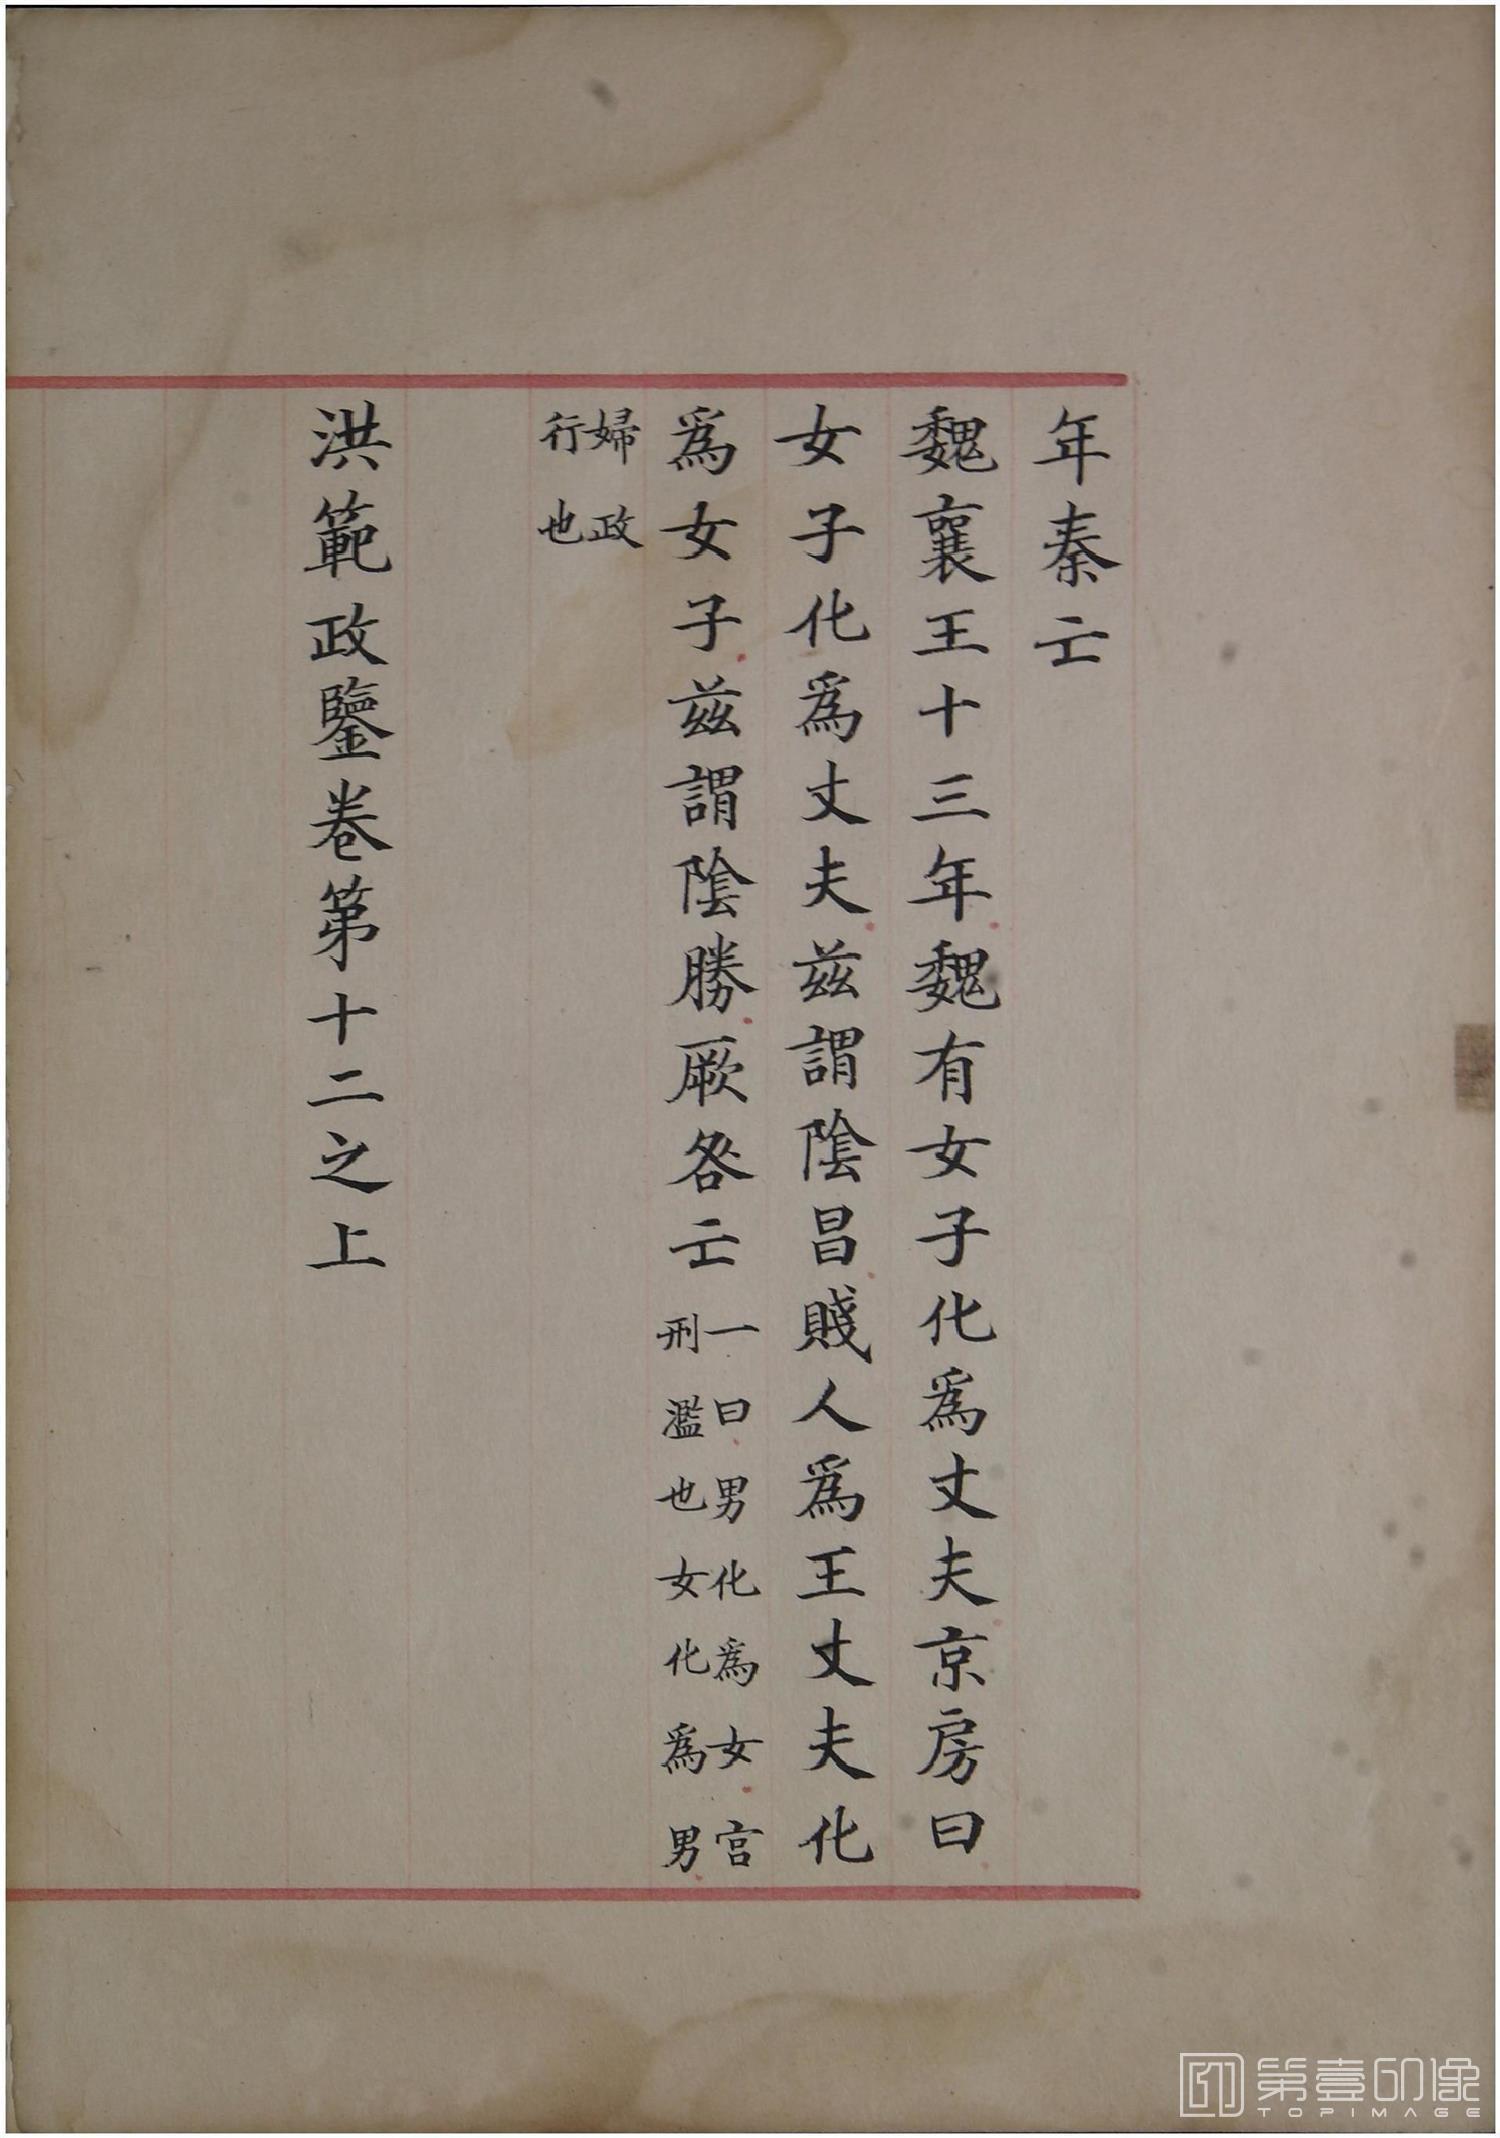 年秦亡
魏襄王十三年魏有女子化爲丈夫京房曰
女子化爲丈夫兹謂陰昌賤人爲王丈夫化
爲女子兹謂陰勝厥咎亡一曰男化爲女宫
刑濫也女化爲男
婦政
行也
洪範政鑒卷第十二之上
第壹印像
TOPIMAGE